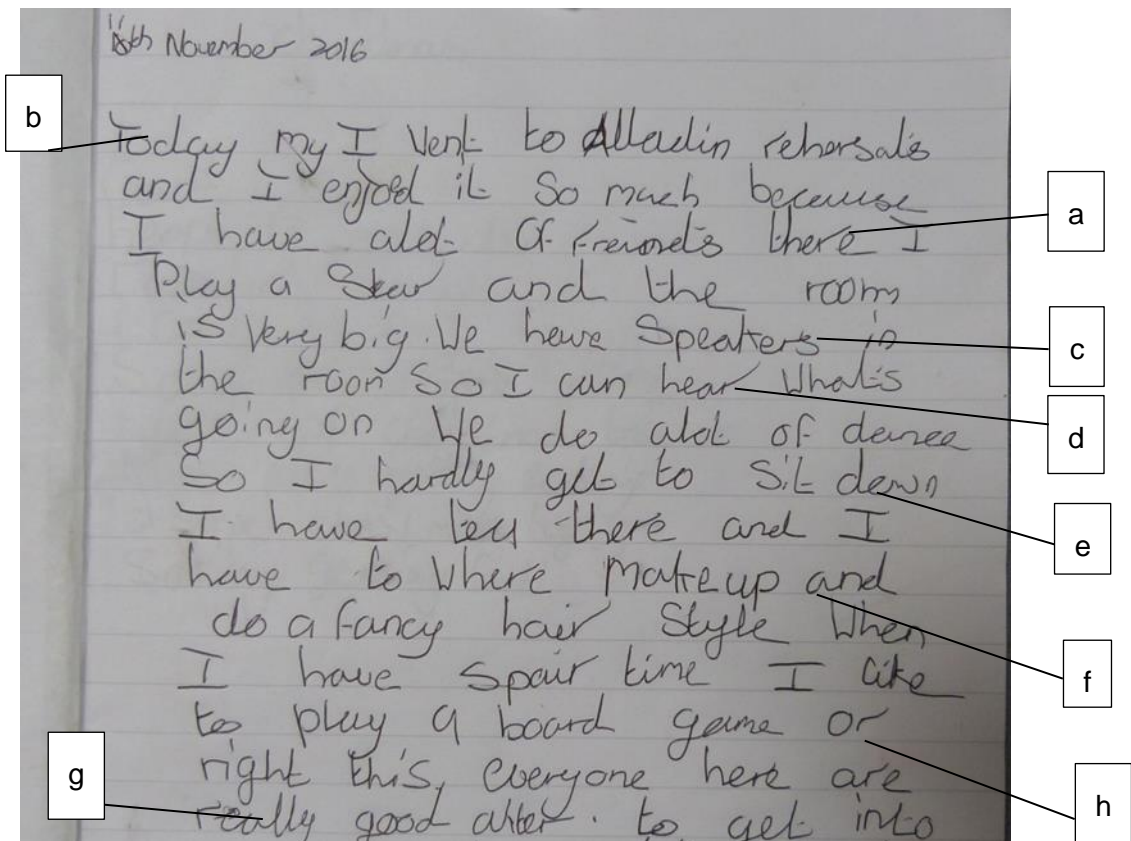 11th November 2016
b
Today my I Went to Alladin rehersals
and I enjoed it So much because
a
I have alot Of freinds there I
Play a Star and the room
is Very big. We have Speakers in
c
the room So I can hear What's
going on We do alot of dance
d
So I hardly get to Sit down
I have tea there and I
e
have to Where Makeup and
do a fancy hair Style When
I have Spair time I like
f
to play a board game or
right this, everyone here are
g
really good at . to get into
h